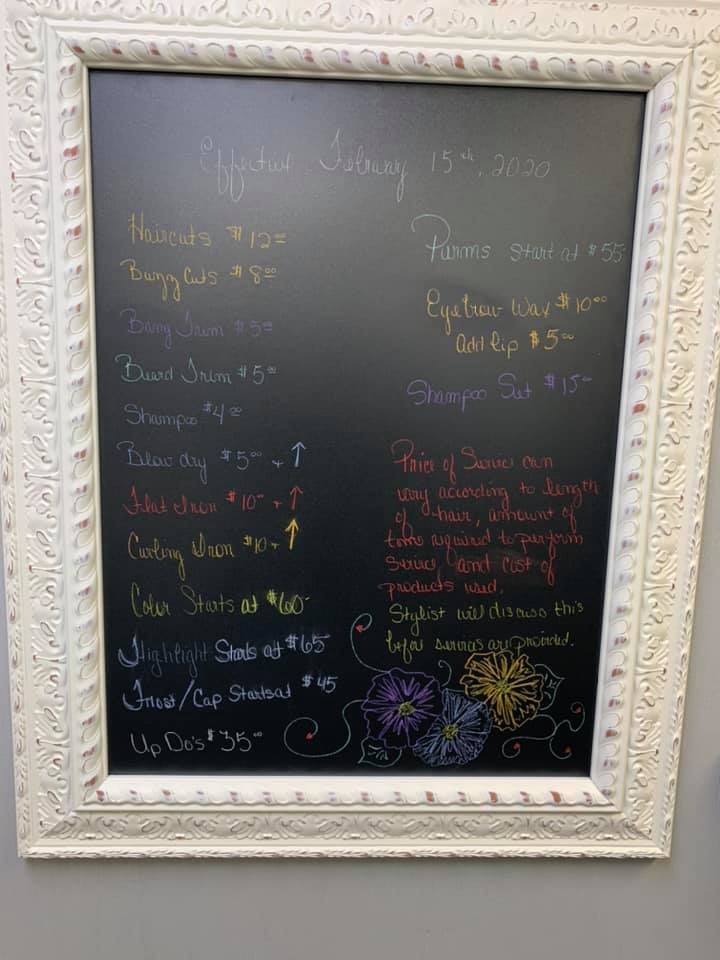 Effective February 15th, 2020
Haircuts $12⁰⁰
Buzz Cuts $8⁰⁰
Bang Trim $5⁰⁰
Beard Trim $5⁰⁰
Shampoo $4⁰⁰
Blow dry $5⁰⁰ + ↑
Flat Iron $10⁰⁰ + ↑
Curling Iron $10 + ↑
Color Starts at $60-
Highlight Starts at $65
Frost/Cap Starts at $45
Up Do's $35⁰⁰
Purms Start at $55
Eyebrow Wax $10⁰⁰
Add Lip $5⁰⁰
Shampoo Set $15-
Price of Service can
vary according to length
of hair, amount of
time required to perform
Service, and cost of
products used.
Stylist will discuss this
before services are provided.